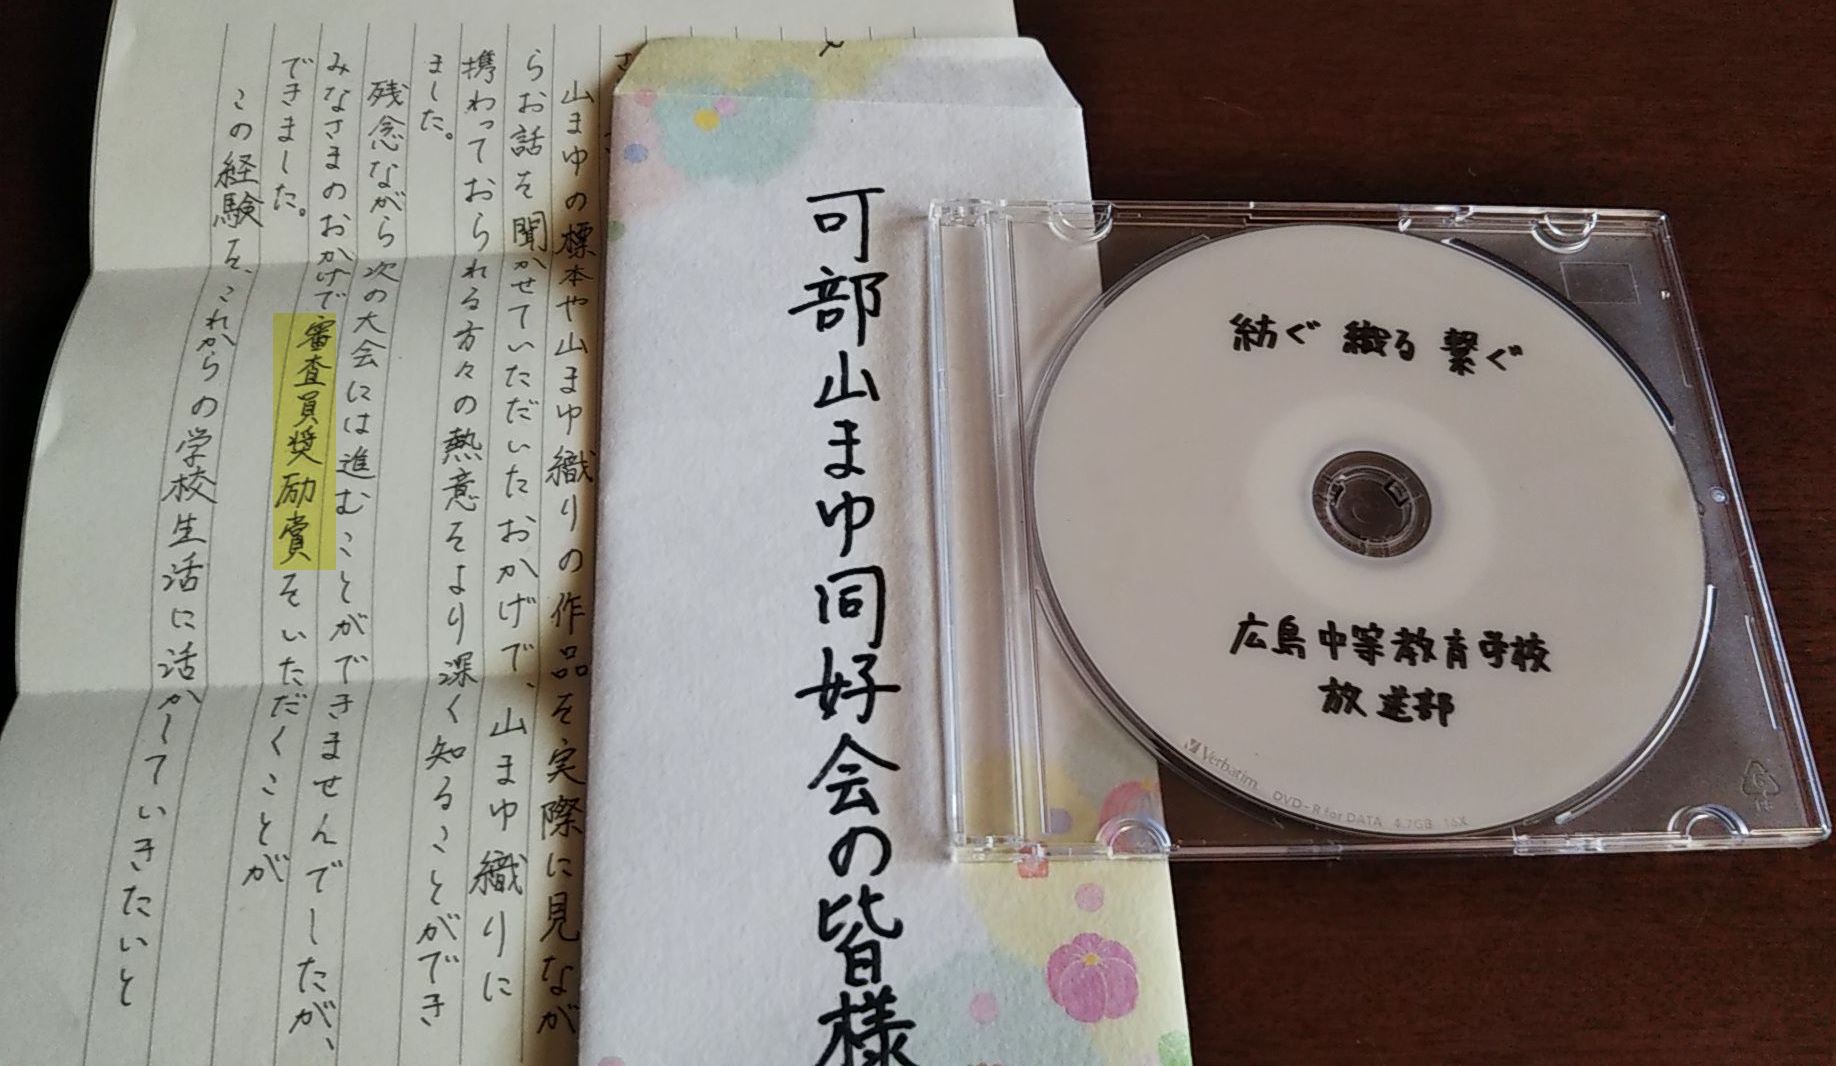 山まゆの標本や山まゆ織りの作品を実際に見なが
らお話を聞かせていただいたおかげで、山まゆ織りに
携わっておられる方々の熱意をより深く知ることができ
ました。
残念ながら次の大会には進むことができませんでしたが、
みなさまのおかげで審査員奨励賞をいただくことが
できました。
この経験を、これからの学校生活に活かしていきたいと
可部山まゆ同好会の皆様
紡ぐ 織る 繋ぐ
広島中等教育学校
放送部
Verbatim DVD-R for DATA 4.7GB 16X